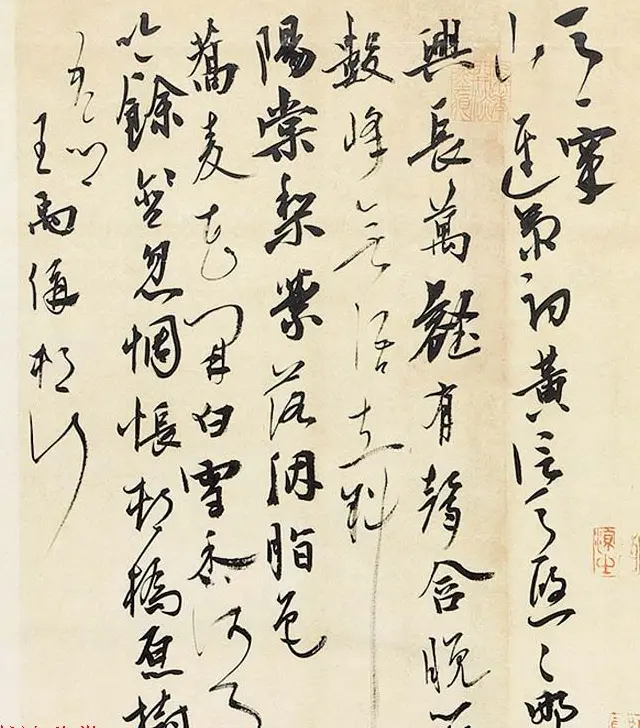 馬穿
山逕菊初黃信馬悠〻野
興長萬壑有聲含晚
數峰無語立斜
陽棠梨葉落胭脂色
蕎麥花開白雪香何事
吟餘忽惆悵村橋原樹
似吾鄉
王禹偁村行